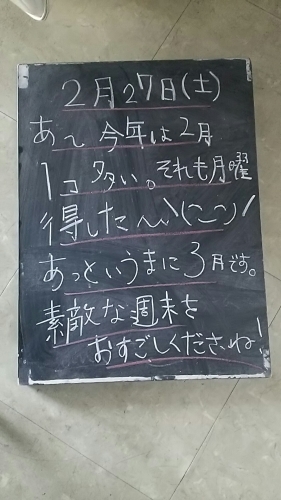 2月27日(土)
あ〜今年は2月
1コ多い。それも月曜
得したんい\(^-^)/
あっというまに3月です。
素敵な週末を
おすごしくださいね!